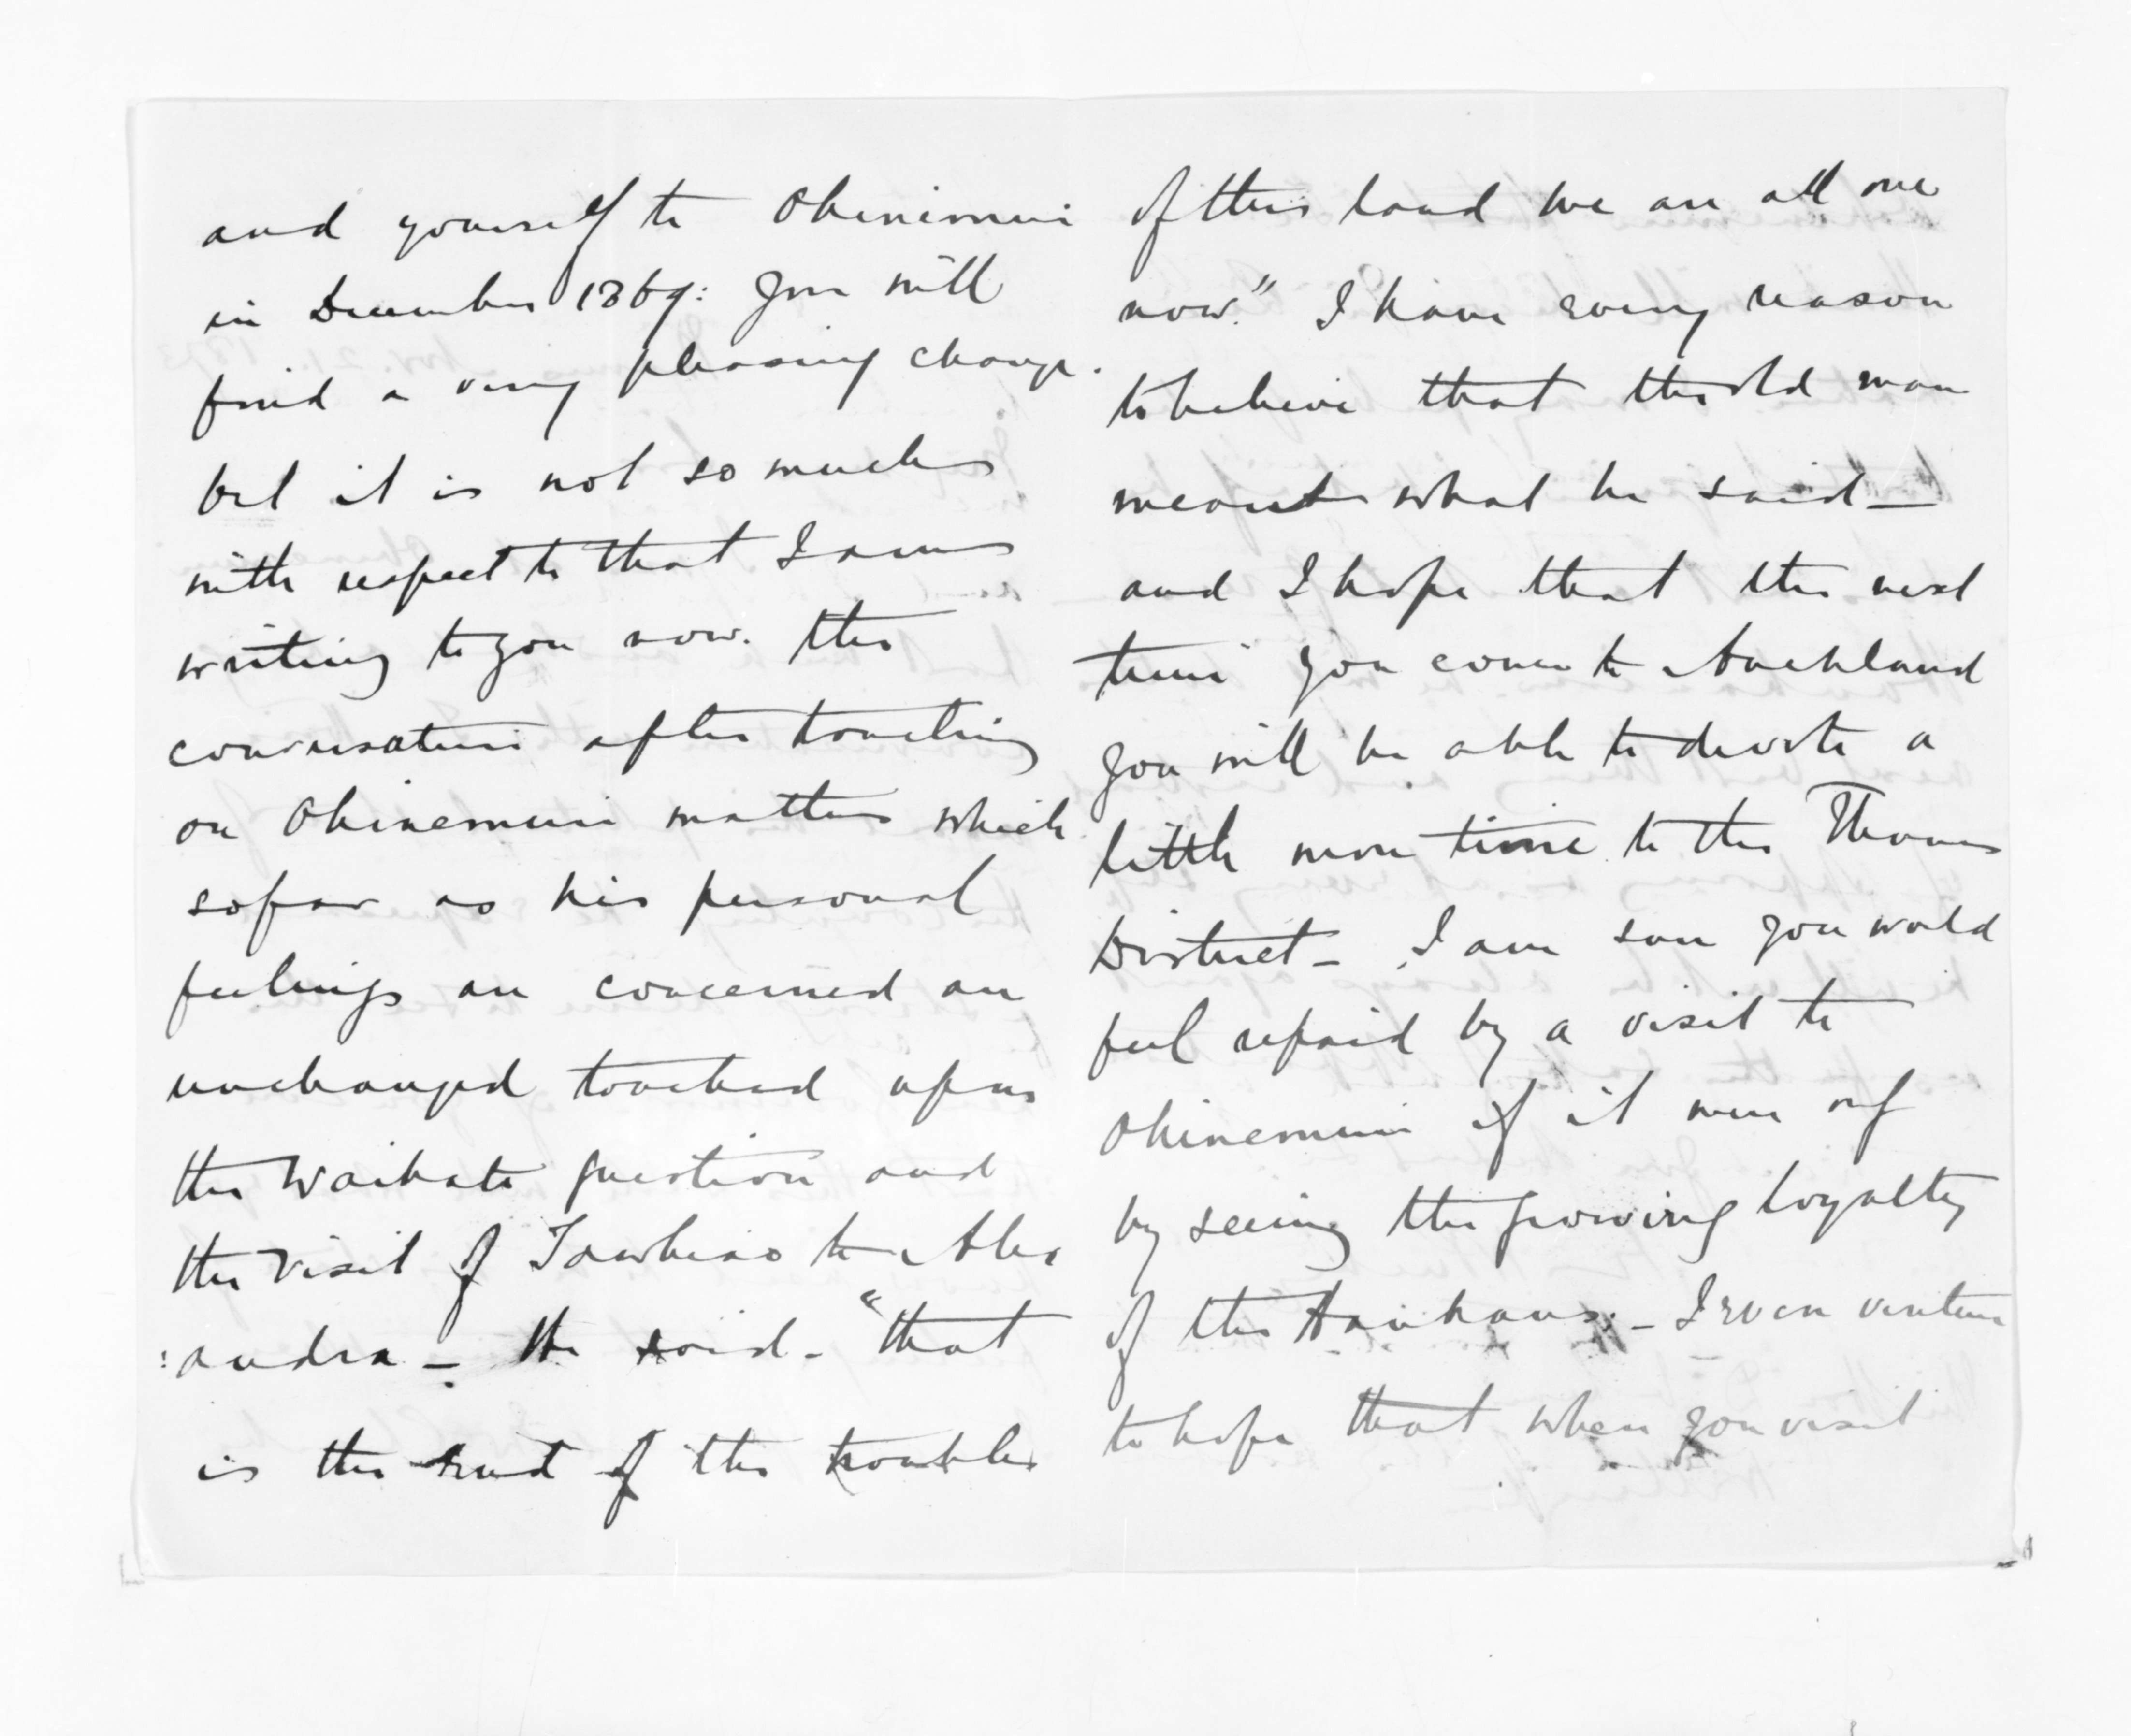 and yourself to Ohinemuri
in December 1869: you will
find a very pleasing change.
but it is not so much
with respect to that I am
writing to you now. the
conversation after touching
on Ohinemuri matters which
so far as his personal
feelings are concerned are
unchanged touched upon
the Waikato question and
the visit of Tawhiao to Alex
:andra - He said - "that
is the end of the troubles
of this land we are all one
now." I have every reason
to believe that the old man
meant what he said -
and I hope that the next
time you come to Auckland
you will be able to devote a
little more time to the Thames
District - I am sure you would
feel repaid by a visit to
Ohinemuri if it were only
by seeing the growing loyalty
of the Hauhaus. - I even venture
to hope that when you visit